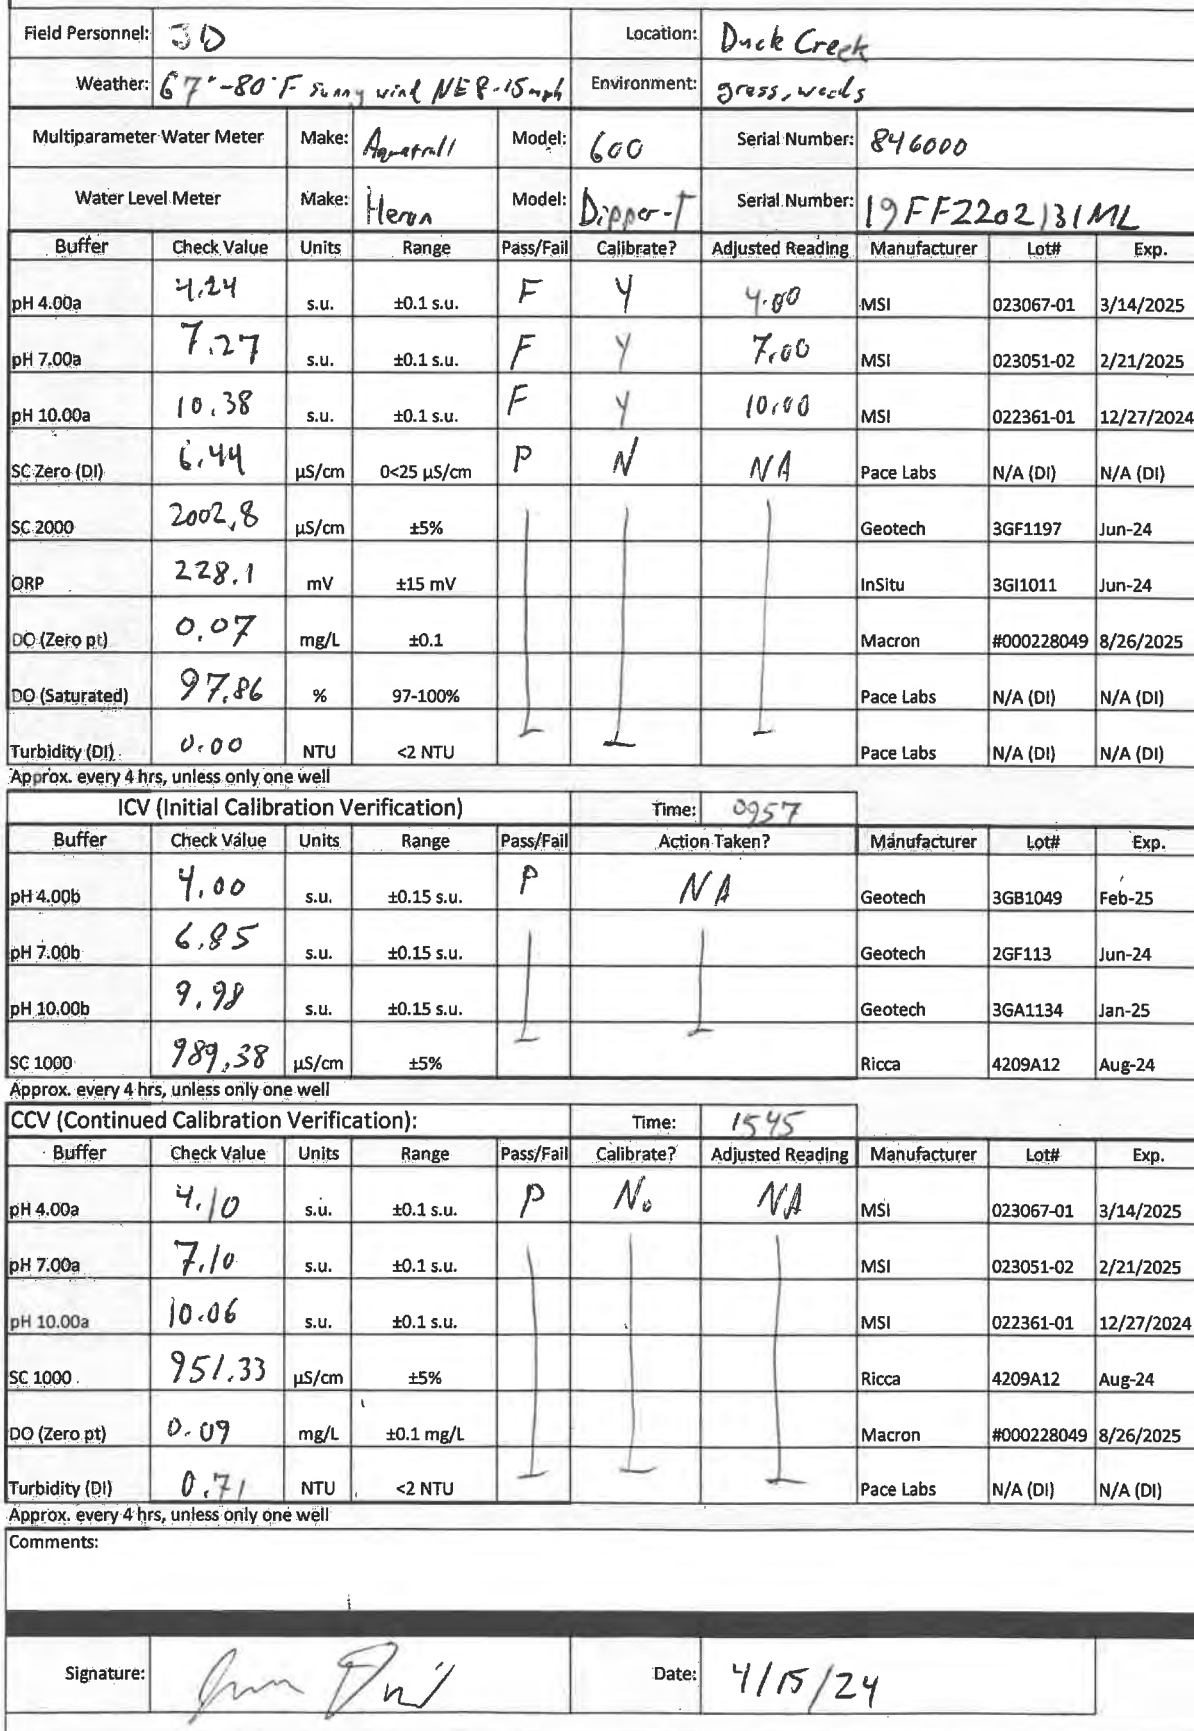 Field Personnel: JD Location: Duck Creek
Weather: 67°-80°F sunny wind NE 8-15mph Environment: grass, weeds
Multiparameter Water Meter Make: Aquatroll Model: 600 Serial Number: 846000
Water Level Meter Make: Heron Model: Dipper-T Serial Number: 19FF2202131ML
Buffer Check Value Units Range Pass/Fail Calibrate? Adjusted Reading Manufacturer Lot# Exp.
pH 4.00a 4.24 s.u. ±0.1 s.u. F Y 4.00 MSI 023067-01 3/14/2025
pH 7.00a 7.27 s.u. ±0.1 s.u. F Y 7.00 MSI 023051-02 2/21/2025
pH 10.00a 10.38 s.u. ±0.1 s.u. F Y 10.00 MSI 022361-01 12/27/2024
SC Zero (DI) 6.44 µS/cm 0<25 µS/cm P N NA Pace Labs N/A (DI) N/A (DI)
SC 2000 2002.8 µS/cm ±5% Geotech 3GF1197 Jun-24
ORP 228.1 mV ±15 mV InSitu 3GI1011 Jun-24
DO (Zero pt) 0.07 mg/L ±0.1 Macron #000228049 8/26/2025
DO (Saturated) 97.86 % 97-100% Pace Labs N/A (DI) N/A (DI)
Turbidity (DI) 0.00 NTU <2 NTU Pace Labs N/A (DI) N/A (DI)
Approx. every 4 hrs, unless only one well
ICV (Initial Calibration Verification) Time: 0957
Buffer Check Value Units Range Pass/Fail Action Taken? Manufacturer Lot# Exp.
pH 4.00b 4.00 s.u. ±0.15 s.u. P NA Geotech 3GB1049 Feb-25
pH 7.00b 6.85 s.u. ±0.15 s.u. Geotech 2GF113 Jun-24
pH 10.00b 9.98 s.u. ±0.15 s.u. Geotech 3GA1134 Jan-25
SC 1000 989.38 µS/cm ±5% Ricca 4209A12 Aug-24
Approx. every 4 hrs, unless only one well
CCV (Continued Calibration Verification): Time: 1545
Buffer Check Value Units Range Pass/Fail Calibrate? Adjusted Reading Manufacturer Lot# Exp.
pH 4.00a 4.10 s.u. ±0.1 s.u. P No NA MSI 023067-01 3/14/2025
pH 7.00a 7.10 s.u. ±0.1 s.u. MSI 023051-02 2/21/2025
pH 10.00a 10.06 s.u. ±0.1 s.u. MSI 022361-01 12/27/2024
SC 1000 951.33 µS/cm ±5% Ricca 4209A12 Aug-24
DO (Zero pt) 0.09 mg/L ±0.1 mg/L Macron #000228049 8/26/2025
Turbidity (DI) 0.71 NTU <2 NTU Pace Labs N/A (DI) N/A (DI)
Approx. every 4 hrs, unless only one well
Comments:
Signature: Date: 4/15/24